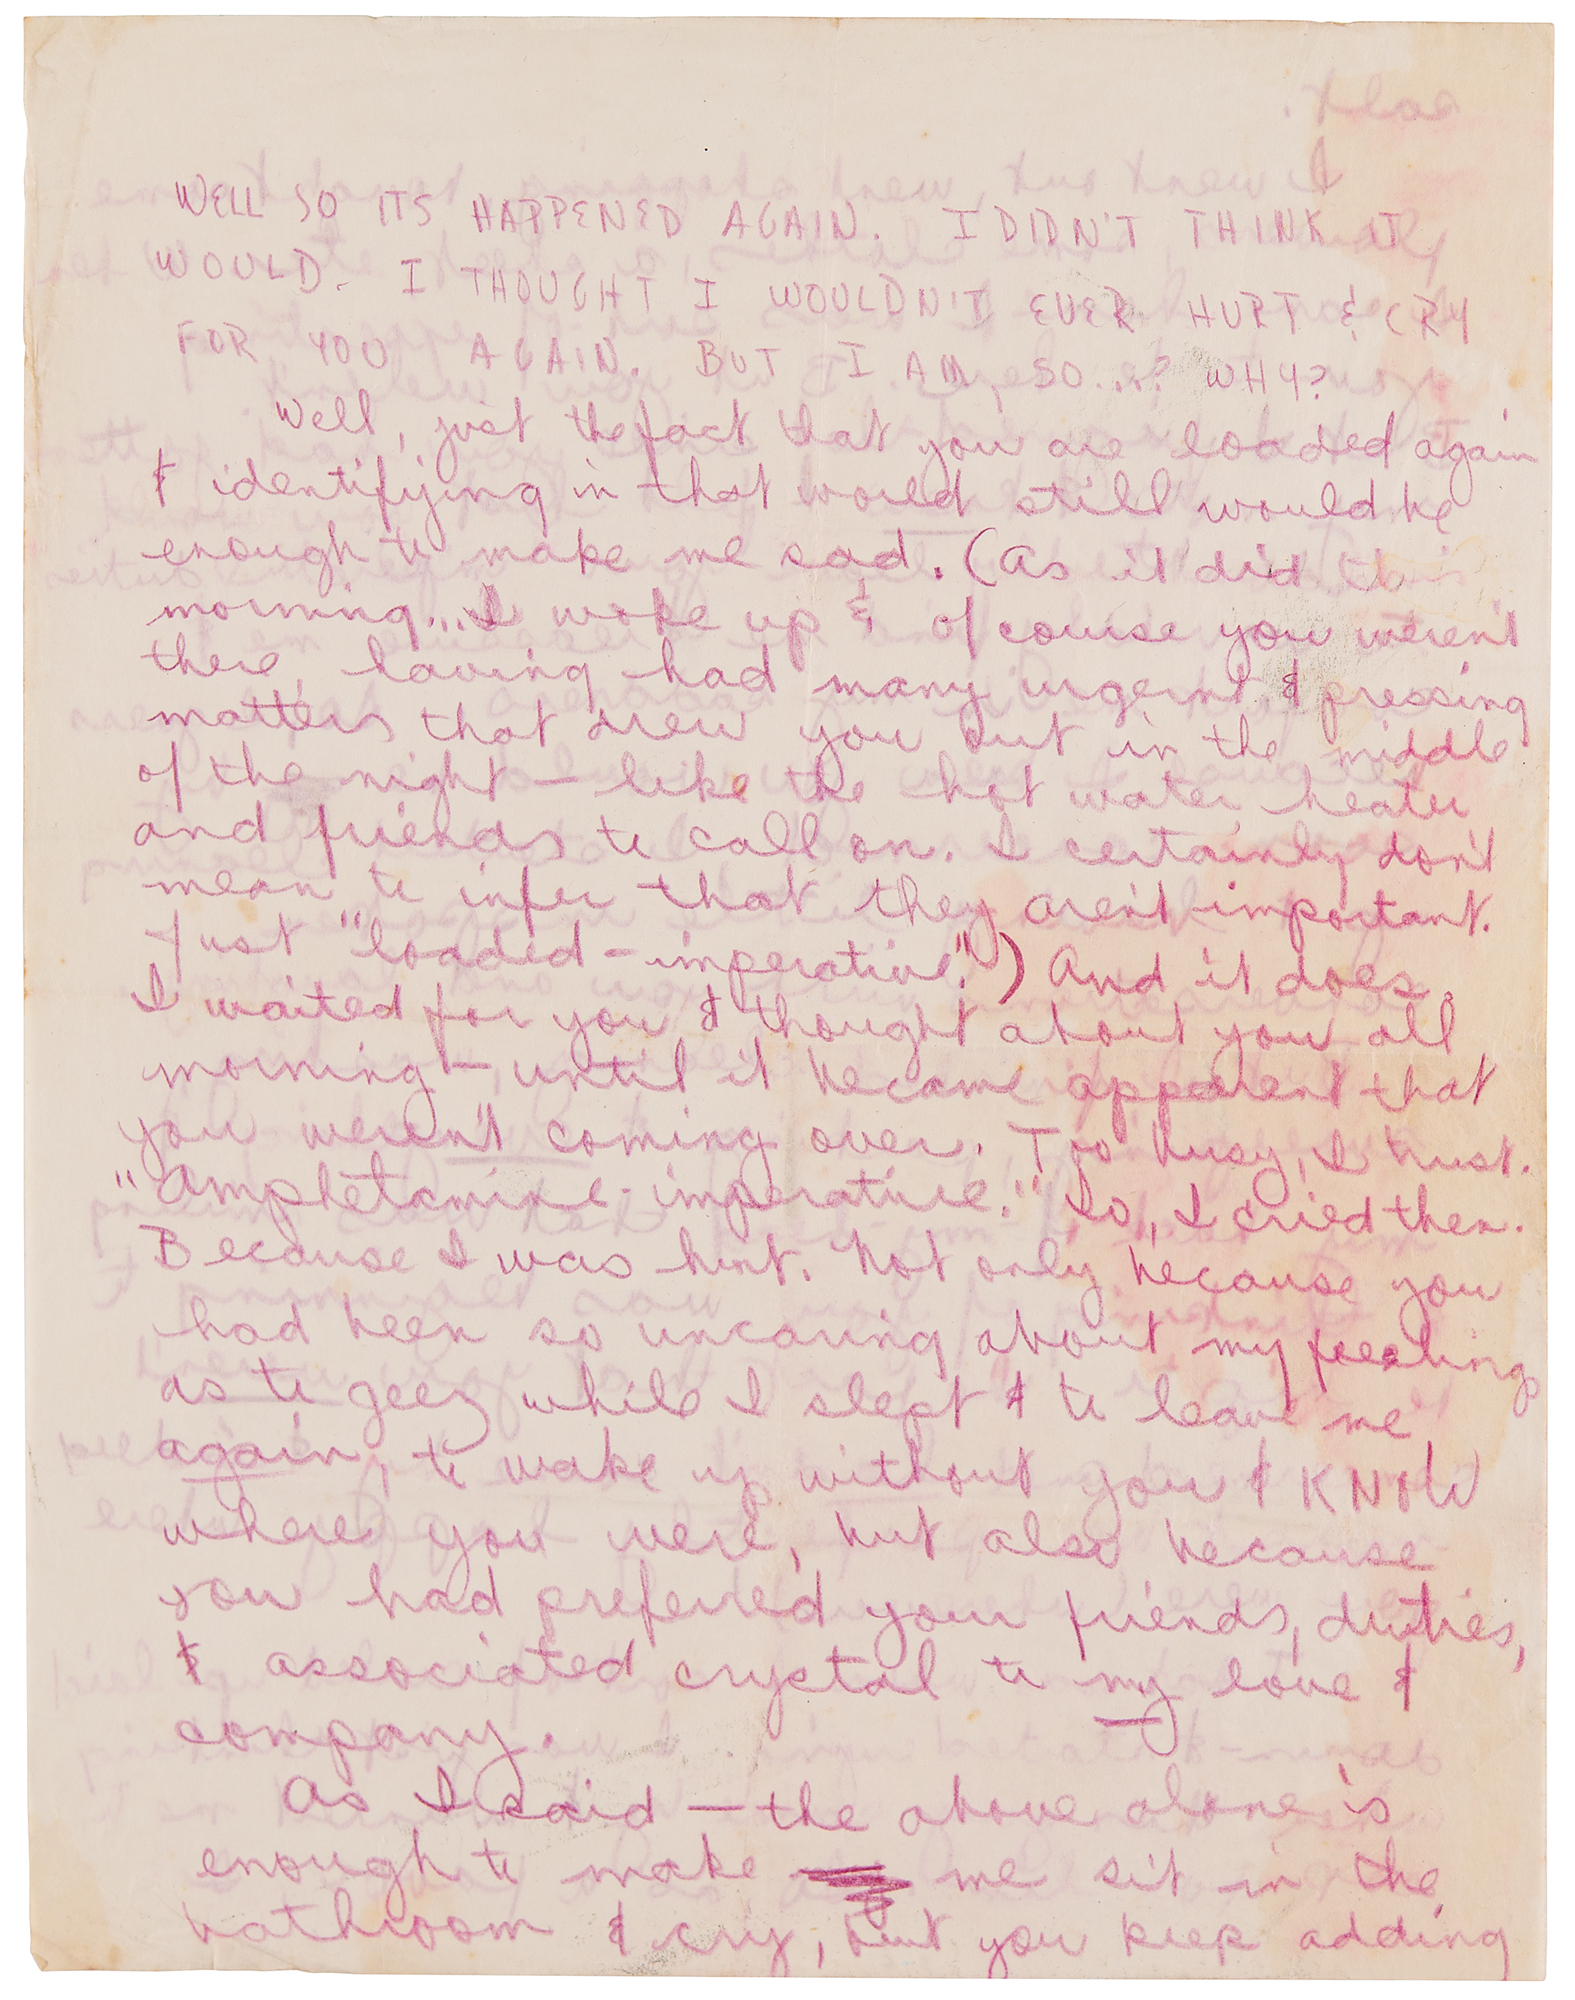 WELL SO ITS HAPPENED AGAIN. I DIDN'T THINK IT
WOULD. I THOUGHT I WOULDN'T EVER HURT & CRY
FOR YOU AGAIN. BUT I AM, SO...? WHY?
Well, just the fact that you are loaded again
& identifying in that world still would be
enough to make me sad. (As it did this
morning... I woke up & of course you weren't
there, having had many urgent & pressing
matters that drew you out in the middle
of the night – like the hot water heater
and friends to call on. I certainly don't
mean to infer that they aren't important.
Just "loaded-imperative.") And it does.
I waited for you & thought about you all
morning – until it became apparent that
you weren't coming over. Too busy, I trust.
"Amphetamine-imperative." So, I cried then.
Because I was hurt. Not only because you
had been so uncaring about my feelings
as to geez while I slept & to leave me
again, to wake up without you & KNOW
where you were, but also because
you had preferred your friends, duties,
& associated crystal to my love &
company.
As I said – the above alone is
enough to make me sit in the
bathroom & cry, but you keep adding